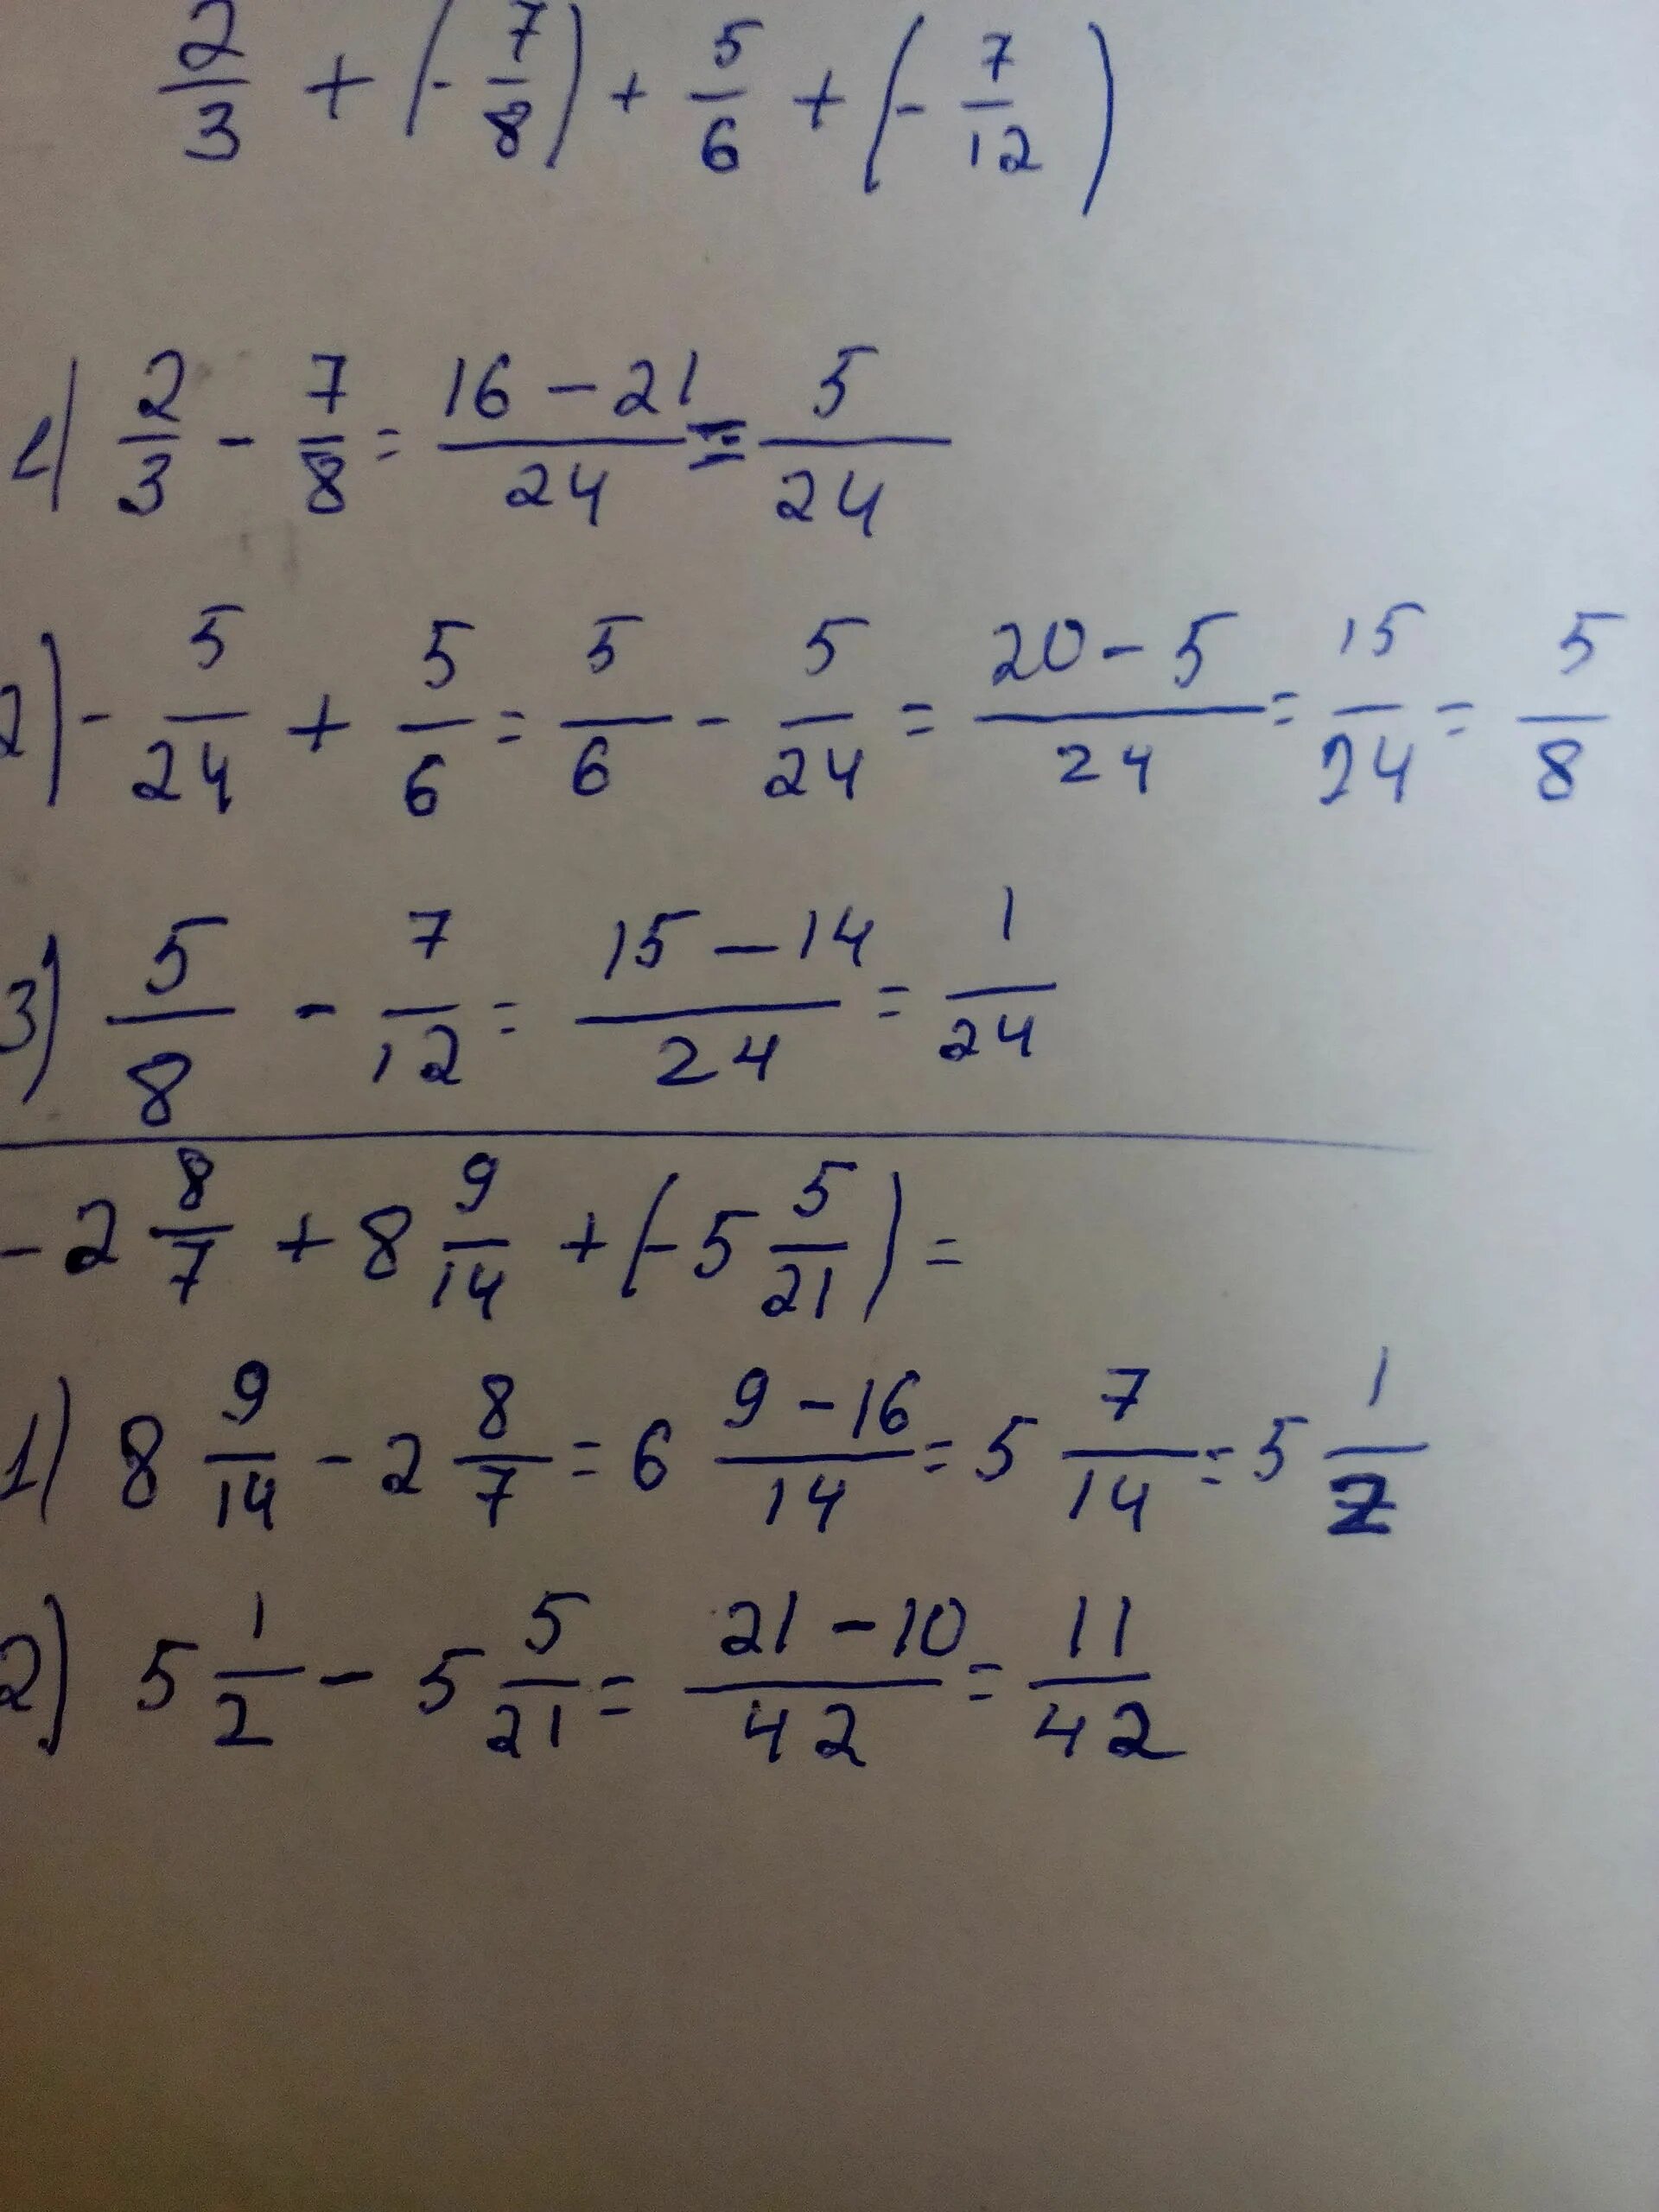 2/3 + (- 7/8) + 5/6 + (- 7/12)
1) 2/3 - 7/8 = (16 - 21)/24 = 5/24
2) - 5/24 + 5/6 = 5/6 - 5/24 = (20 - 5)/24 = 15/24 = 5/8
3) 5/8 - 7/12 = (15 - 14)/24 = 1/24
- 2 8/7 + 8 9/14 + (- 5 5/21) =
1) 8 9/14 - 2 8/7 = 6 (9 - 16)/14 = 5 7/14 = 5 1/2
2) 5 1/2 - 5 5/21 = (21 - 10)/42 = 11/42